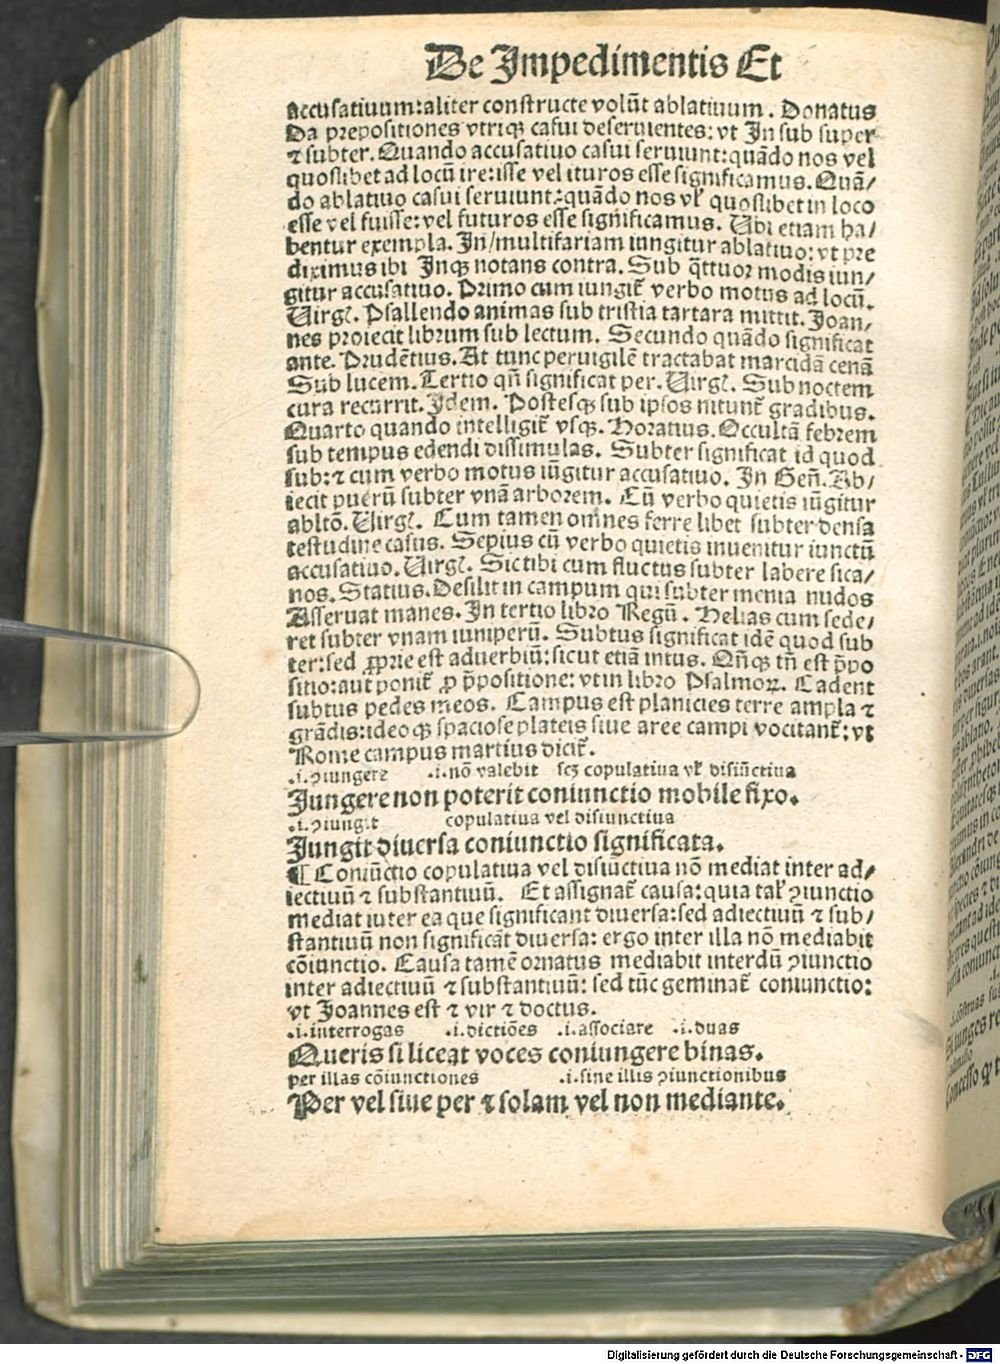 De Impedimentis Et
accusatiuum: aliter constructe volūt ablatiuum. Donatus
Da prepositiones vtriqꝫ casui deseruientes: vt In sub super
⁊ subter. Quando accusatiuo casui seruiunt: quādo nos vel
quoslibet ad locū ire: isse vel ituros esse significamus. Quā/
do ablatiuo casui seruiunt: quādo nos vl̓ quoslibet in loco
esse vel fuisse: vel futuros esse significamus. Ubi etiam ha/
bentur exempla. In/multifariam iungitur ablatiuo: vt pre
diximus ibi Inqꝫ notans contra. Sub q̄ttuor modis iun/
gitur accusatiuo. Primo cum iungit᷑ verbo motus ad locū.
Uirgꝉ. Psallendo animas sub tristia tartara mittit. Joan/
nes proiecit librum sub lectum. Secundo quādo significat
ante. Prudētius. At tunc peruigilē tractabat marcidā cenā
Sub lucem. Tertio qn̄ significat per. Uirgꝉ. Sub noctem
cura recurrit. Idem. Postesqꝫ sub ipsos nitunt᷑ gradibus.
Quarto quando intelligit᷑ vsqꝫ. Horatius. Occultā febrem
sub tempus edendi dissimulas. Subter significat id quod
sub: ⁊ cum verbo motus iūgitur accusatiuo. In Gen̄. Ab/
iecit puerū subter vnā arborem. Cū verbo quietis iūgitur
abltō. Uirgꝉ. Cum tamen omnes ferre libet subter densa
testudine casus. Sepius cū verbo quietis inuenitur iunctū
accusatiuo. Uirgꝉ. Sic tibi cum fluctus subter labere sica/
nos. Statius. Desilit in campum qui subter menia nudos
Asseruat manes. In tertio libro Regū. Helias cum sede/
ret subter vnam iuniperū. Subtus significat idē quod sub
ter: sed ꝓprie est aduerbiū: sicut etiā intus. Qn̄qꝫ tn̄ est p̄po
sitio: aut ponit᷑ ꝓ p̄positione: vt in libro Psalmoꝝ. Cadent
subtus pedes meos. Campus est planicies terre ampla ⁊
grādis: ideoqꝫ spaciose plateis siue aree campi vocitant᷑: vt
Rome campus martius dicit᷑.
.i. ꝯiungere .i. nō valebit scꝫ copulatiua vl̓ disiūctiua
Jungere non poterit coniunctio mobile fixo.
.i. ꝯiungit copulatiua vel disiunctiua
Jungit diuersa coniunctio significata.
¶ Coniūctio copulatiua vel disiūctiua nō mediat inter ad/
iectiuū ⁊ substantiuū. Et assignat᷑ causa: quia tal̓ ꝯiunctio
mediat iuter ea que significant diuersa: sed adiectiuū ⁊ sub/
stantiuū non significāt diuersa: ergo inter illa nō mediabit
cōiunctio. Causa tamē ornatus mediabit interdū ꝯiunctio
inter adiectiuū ⁊ substantiuū: sed tūc geminat᷑ coniunctio:
vt Joannes est ⁊ vir ⁊ doctus.
.i. interrogas .i. dictiōes .i. associare .i. duas
Queris si liceat voces coniungere binas.
per illas cōiunctiones .i. sine illis ꝯiunctionibus
Per vel siue per ⁊ solam vel non mediante.
Digitalisierung gefördert durch die Deutsche Forschungsgemeinschaft - DFG